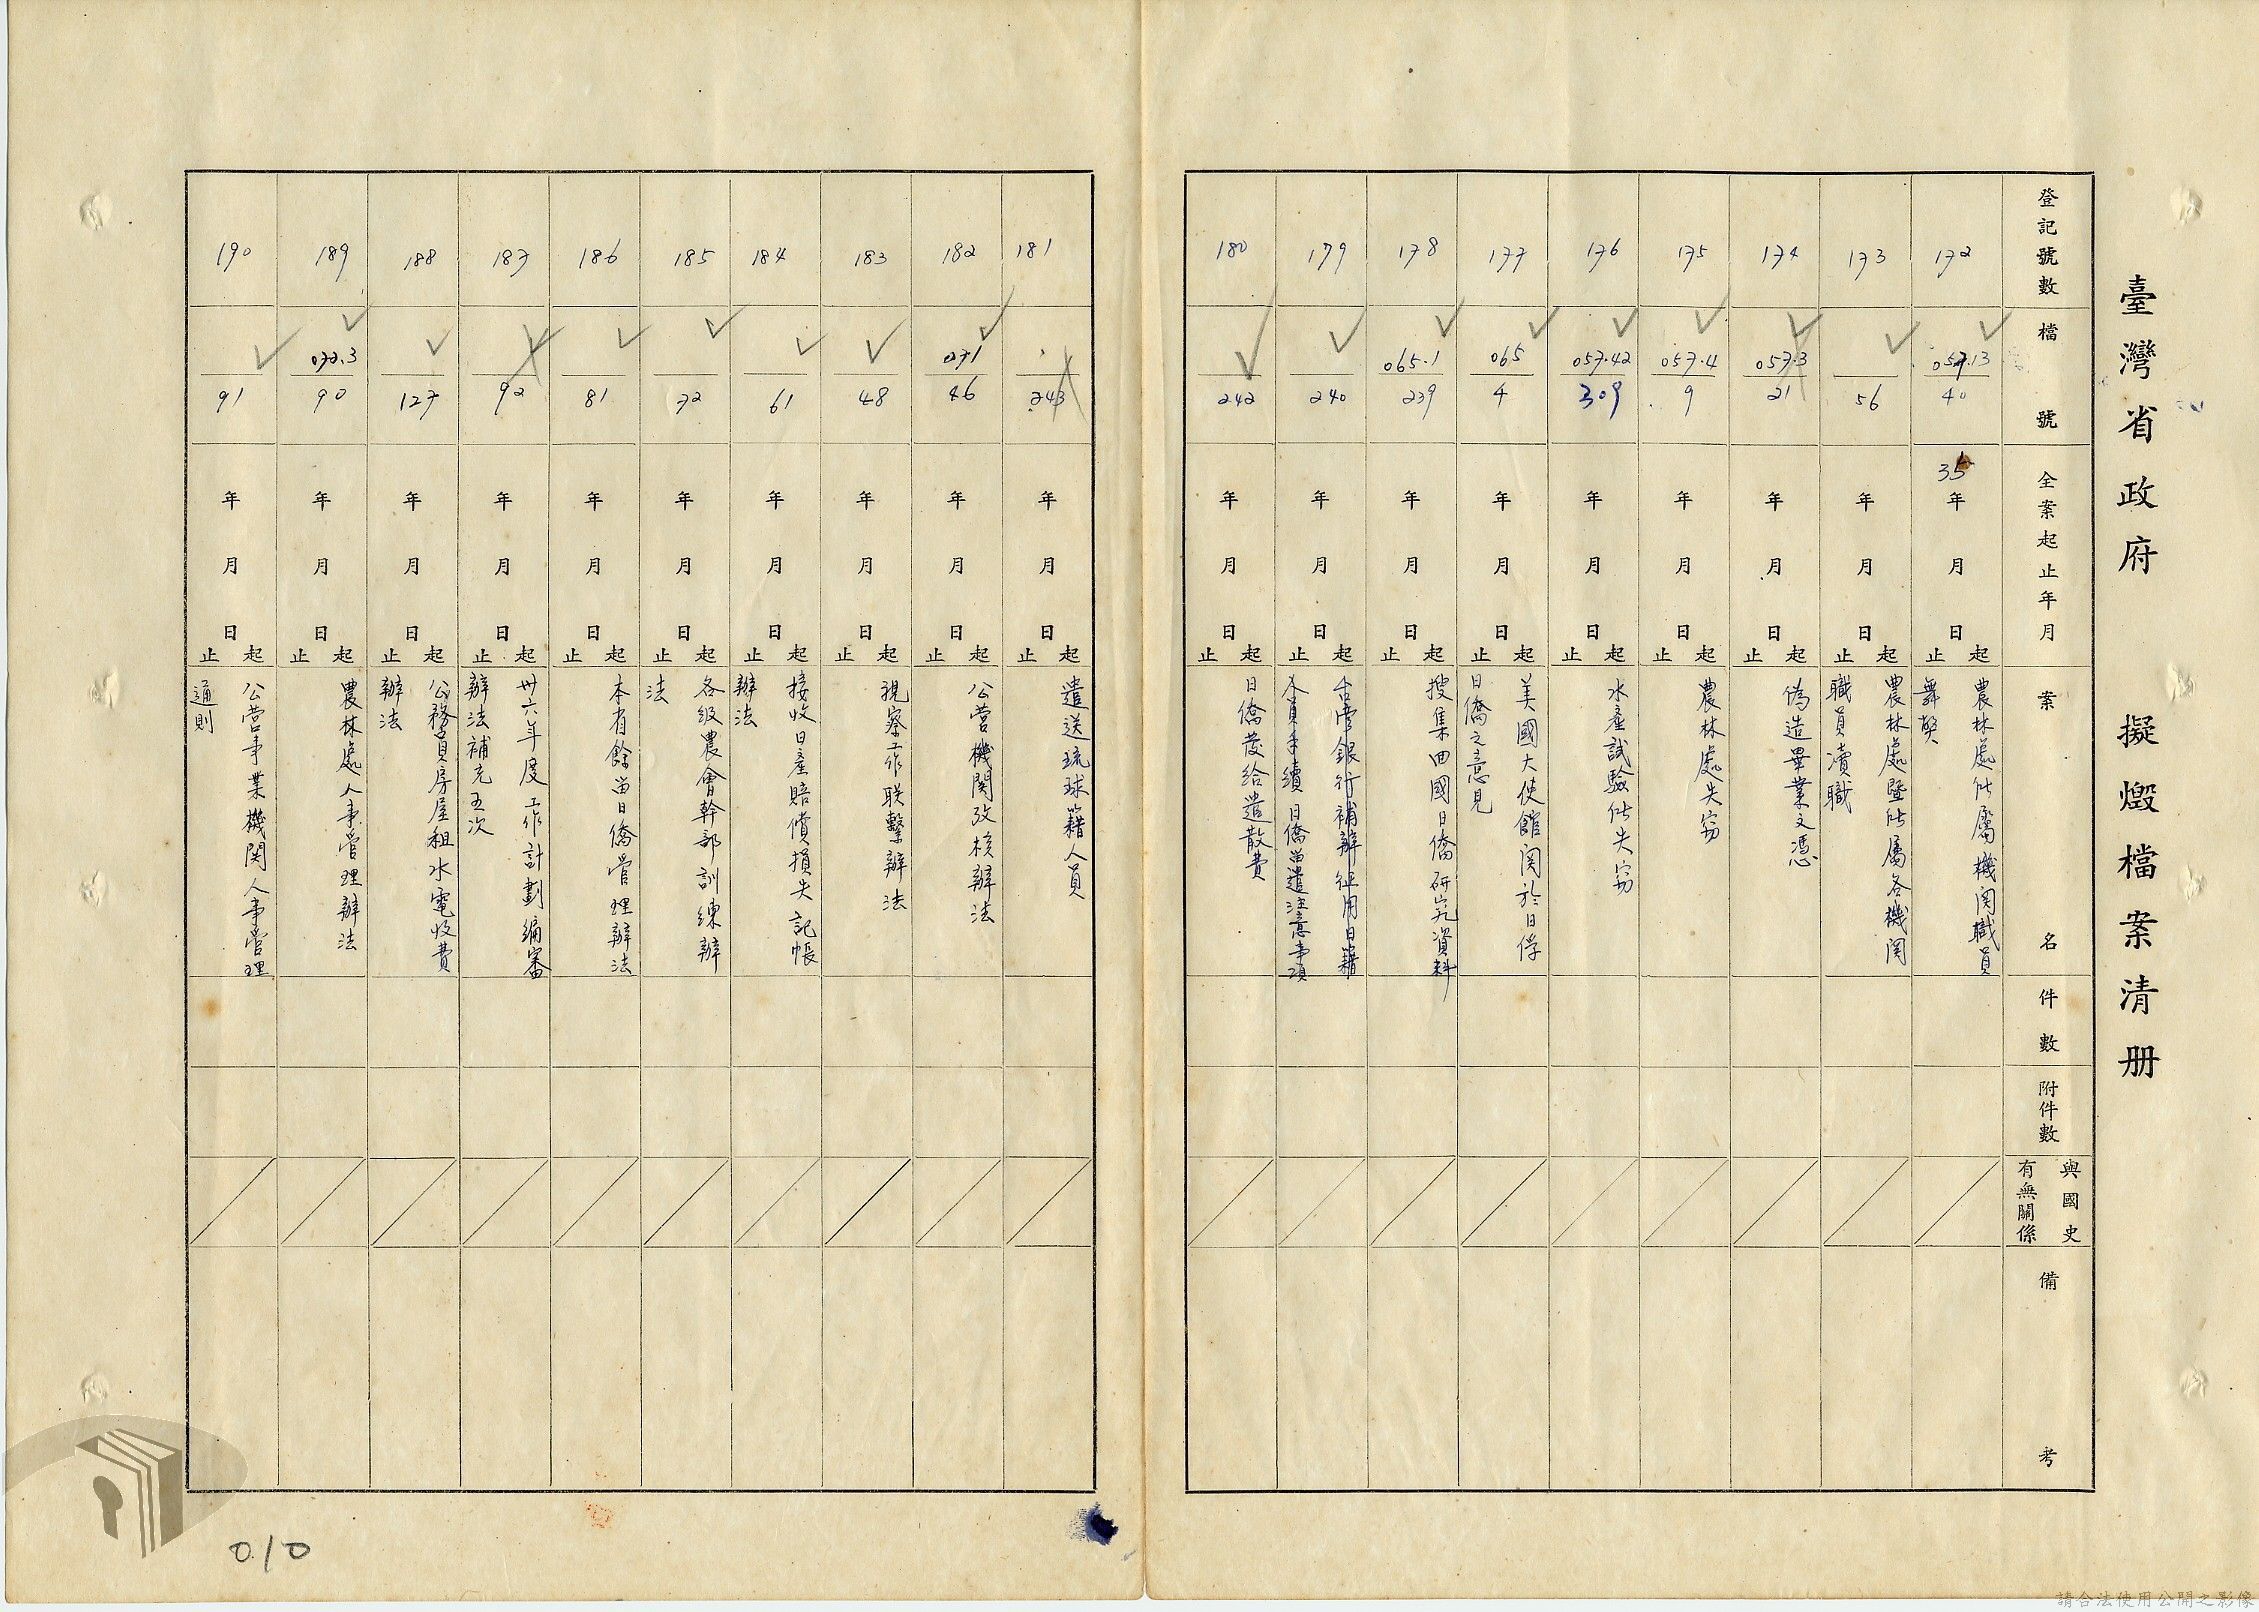 臺灣省政府 擬燬檔案清册
登記號數
檔號
全案起止年月
案名
件數
附件數
與國史
有無關係
備考
172
057.13
40
35年月日起止
農林處所屬機関職員
舞弊
173
56
年月日起止
農林處暨所屬各機関
職員瀆職
174
057.3
21
年月日起止
偽造畢業文憑
175
057.4
9
年月日起止
農林處失窃
176
057.42
309
年月日起止
水產試驗所失窃
177
065
4
年月日起止
美國大使館関於日俘
日僑之意見
178
065.1
239
年月日起止
搜集回國日僑研究資料
179
240
年月日起止
台灣銀行補辦征用日籍
人員手續日僑留遣注意事項
180
242
年月日起止
日僑發給遣散費
181
243
年月日起止
遣送琉球籍人員
182
071
46
年月日起止
公营機関攷核辦法
183
48
年月日起止
視察工作联繫辦法
184
61
年月日起止
接收日產賠償損失記帳
辦法
185
72
年月日起止
各級農會幹部訓練辦
法
186
81
年月日起止
本省餘留日僑管理辦法
187
92
年月日起止
卅六年度工作計劃編審
辦法補充五次
188
127
年月日起止
公務員房屋租水電收費
辦法
189
072.3
90
年月日起止
農林處人事管理辦法
190
91
年月日起止
公营事業機関人事管理
通則
010
請合法使用公開之影像